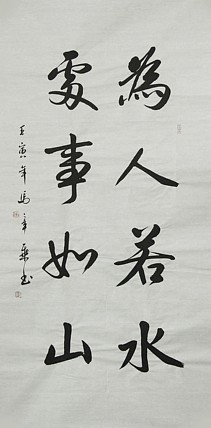 為人若水
處事如山
壬寅年馬年葉書